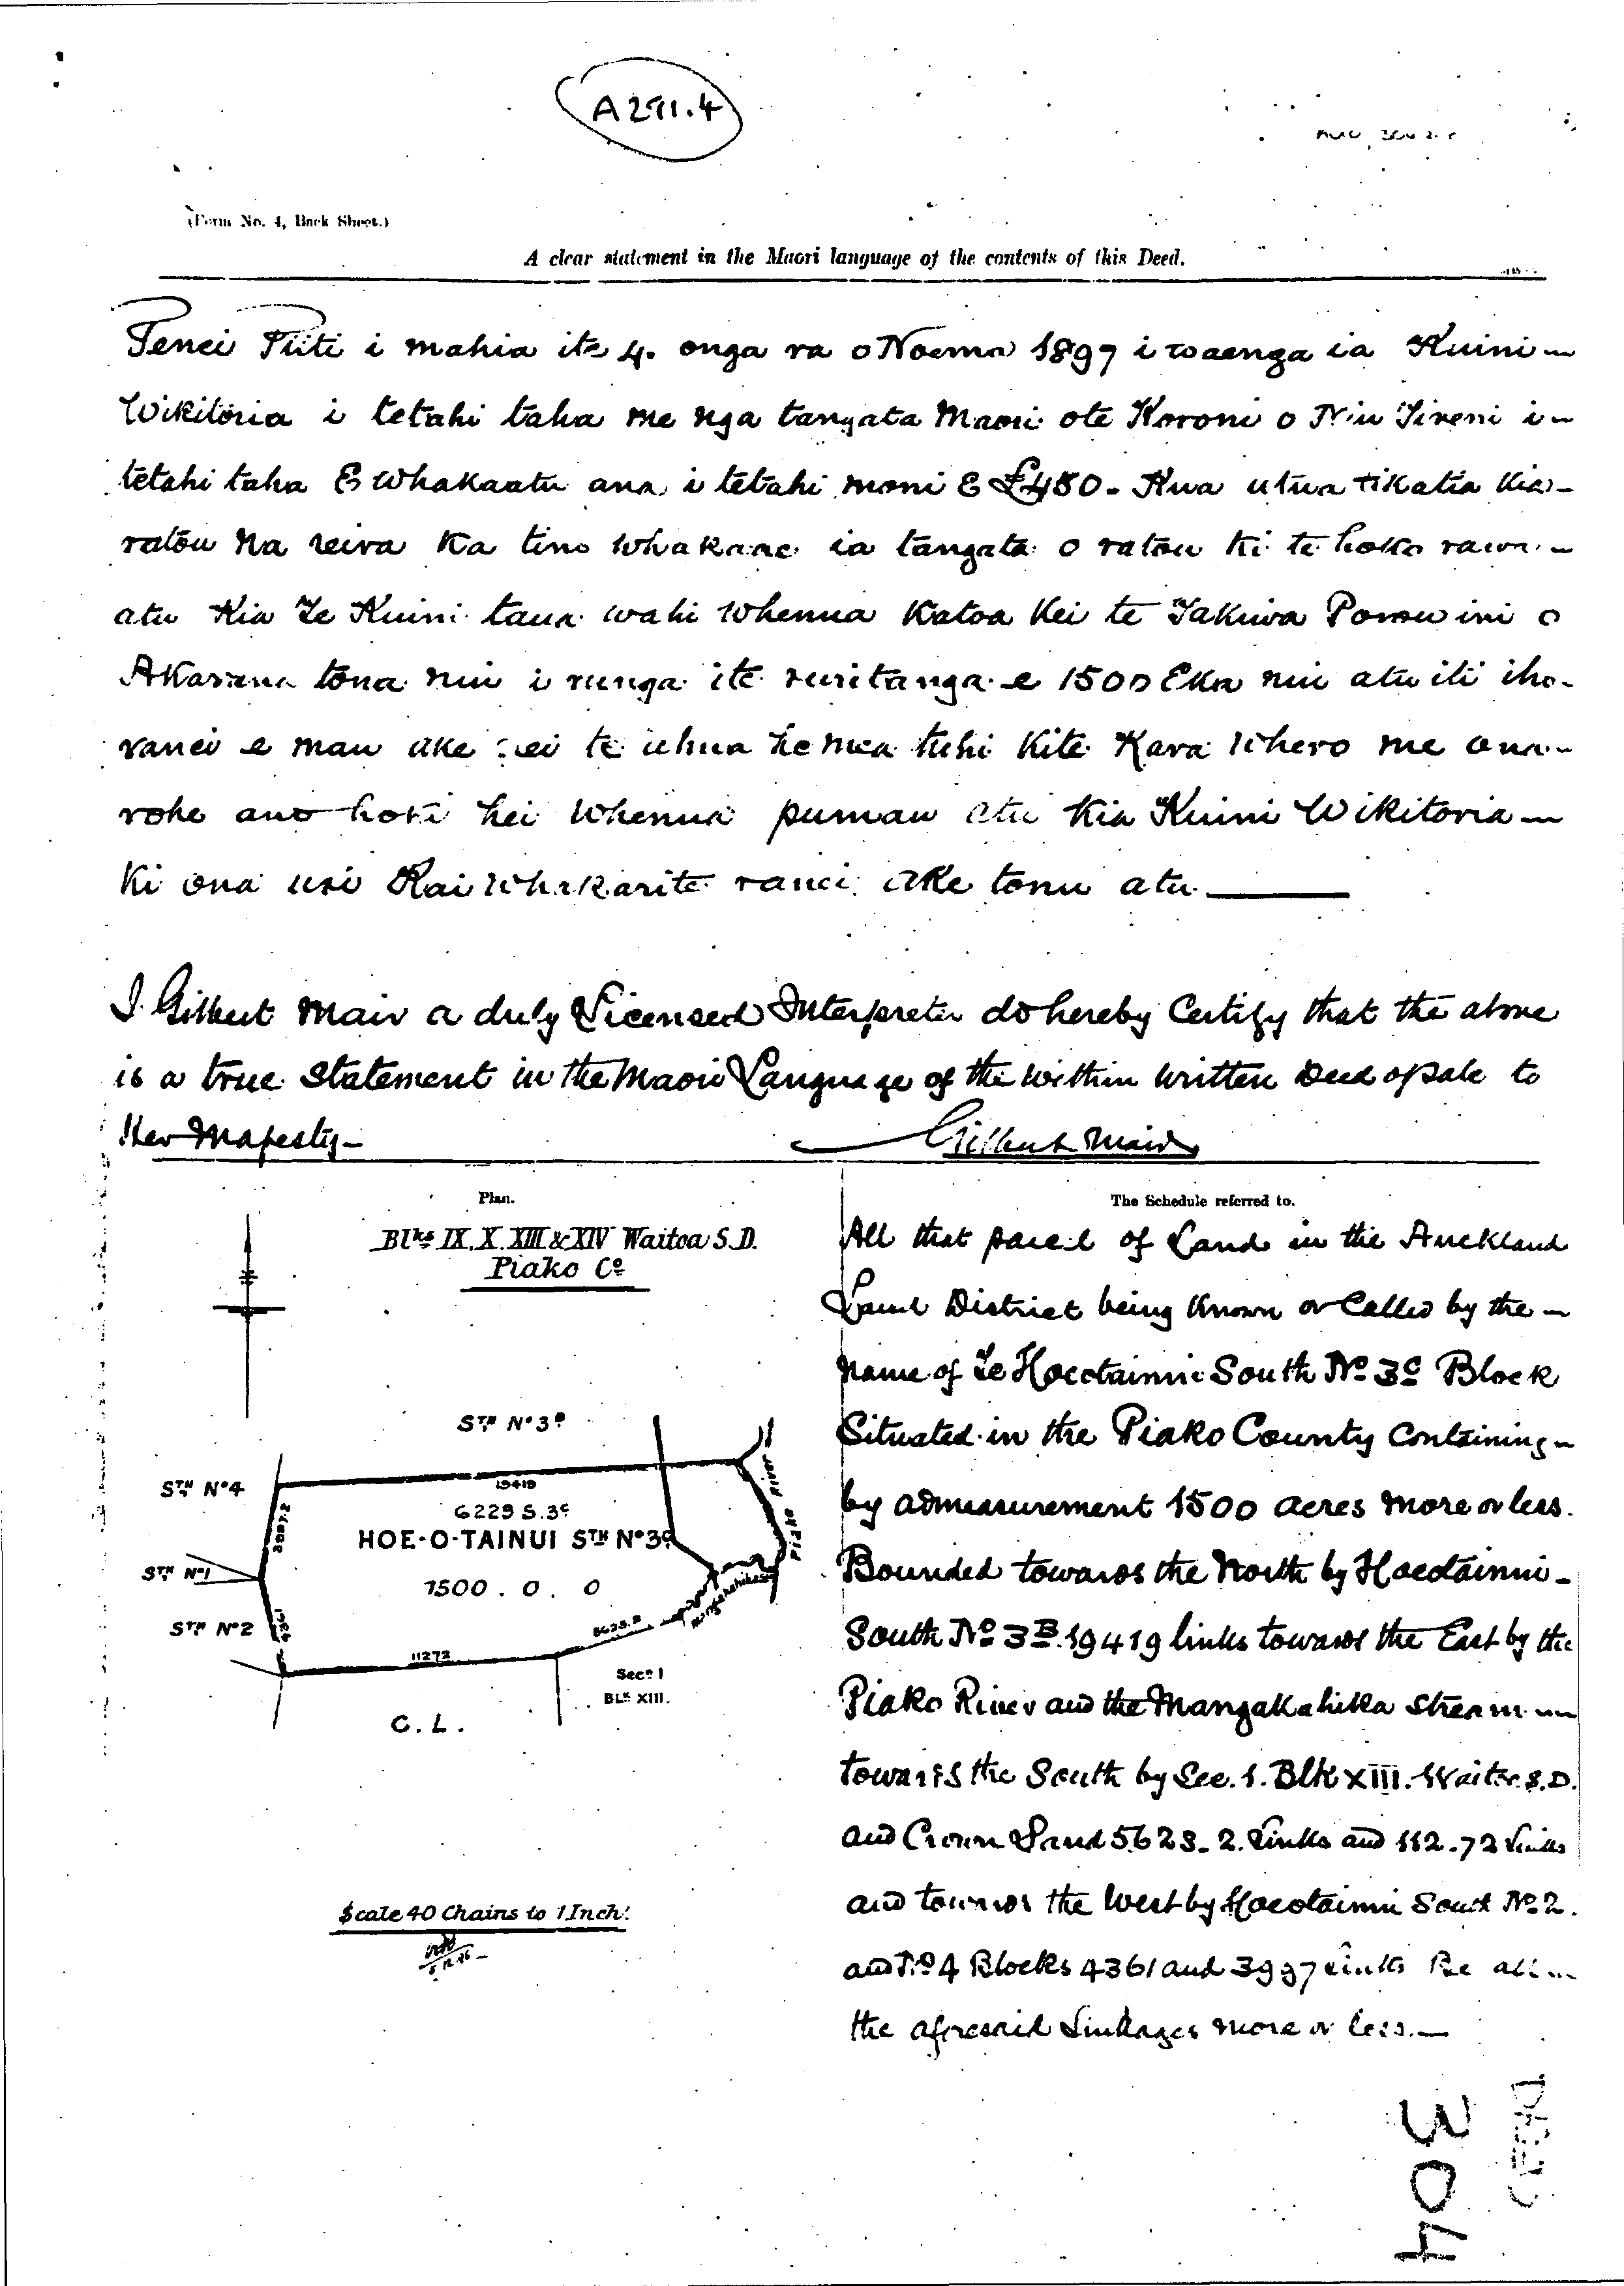 A291.4
(Form No. 4, Back Sheet.)
A clear statement in the Maori language of the contents of this Deed.
Tenei Tiiti i mahia ite 4. onga ra o Noema 1897 i waenga ia Kuini
Wikitoria i tetahi taha me nga tangata Maori ote Koroni o Niu Tireni i
tetahi taha E whakaatu ana i tetahi moni E £450. Kua utua tikatia kia
ratou Na reira Ka tino whakaae ia tangata o ratou ki te hoko rawa
atu Kia Te Kuini taua wahi whenua Katoa Kei te Takiwa Porowini o
Akarana tona nui i runga ite ruritanga e 1500 Eka nui atu iti iho
ranei e mau ake nei te ahua he mea tuhi Kite Kara Whero me ona
rohe ano hoki hei whenua pumau atu Kia Kuini Wikitoria
Ki ona uri Kai Whakarite ranei ake tonu atu.
I Gilbert Mair a duly Licensed Interpreter do hereby Certify that the above
is a true Statement in the Maori Language of the within written Deed of Sale to
Her Majesty
Gilbert Mair
Plan.
Blks IX. X. XIII & XIV Waitoa S.D.
Piako Co
STH No 3B
STH No 4
19419
6229 S.3C
HOE-O-TAINUI STH No 3C
1500 . 0 . 0
STH No 1
STH No 2
4361
Mangakahika
5623.2
11272
Secn 1
BLK XIII.
C. L.
Scale 40 Chains to 1 Inch.
The Schedule referred to.
All that parcel of Land in the Auckland
Land District being Known or Called by the
name of Te Hoeotainui South No 3C Block
Situated in the Piako County Containing
by admeasurement 1500 acres more or less.
Bounded towards the North by Hoeotainui
South No 3B. 19419 links towards the East by the
Piako River and the Mangakahika Stream
towards the South by Sec. 1. Blk XIII. Waitoa S.D.
and Crown Land 5623.2. Links and 112.72 Links
and towards the West by Hoeotainui South No 2.
and No 4 Blocks 4361 and 3997 links Be all
the aforesaid Linkages more or less.
304